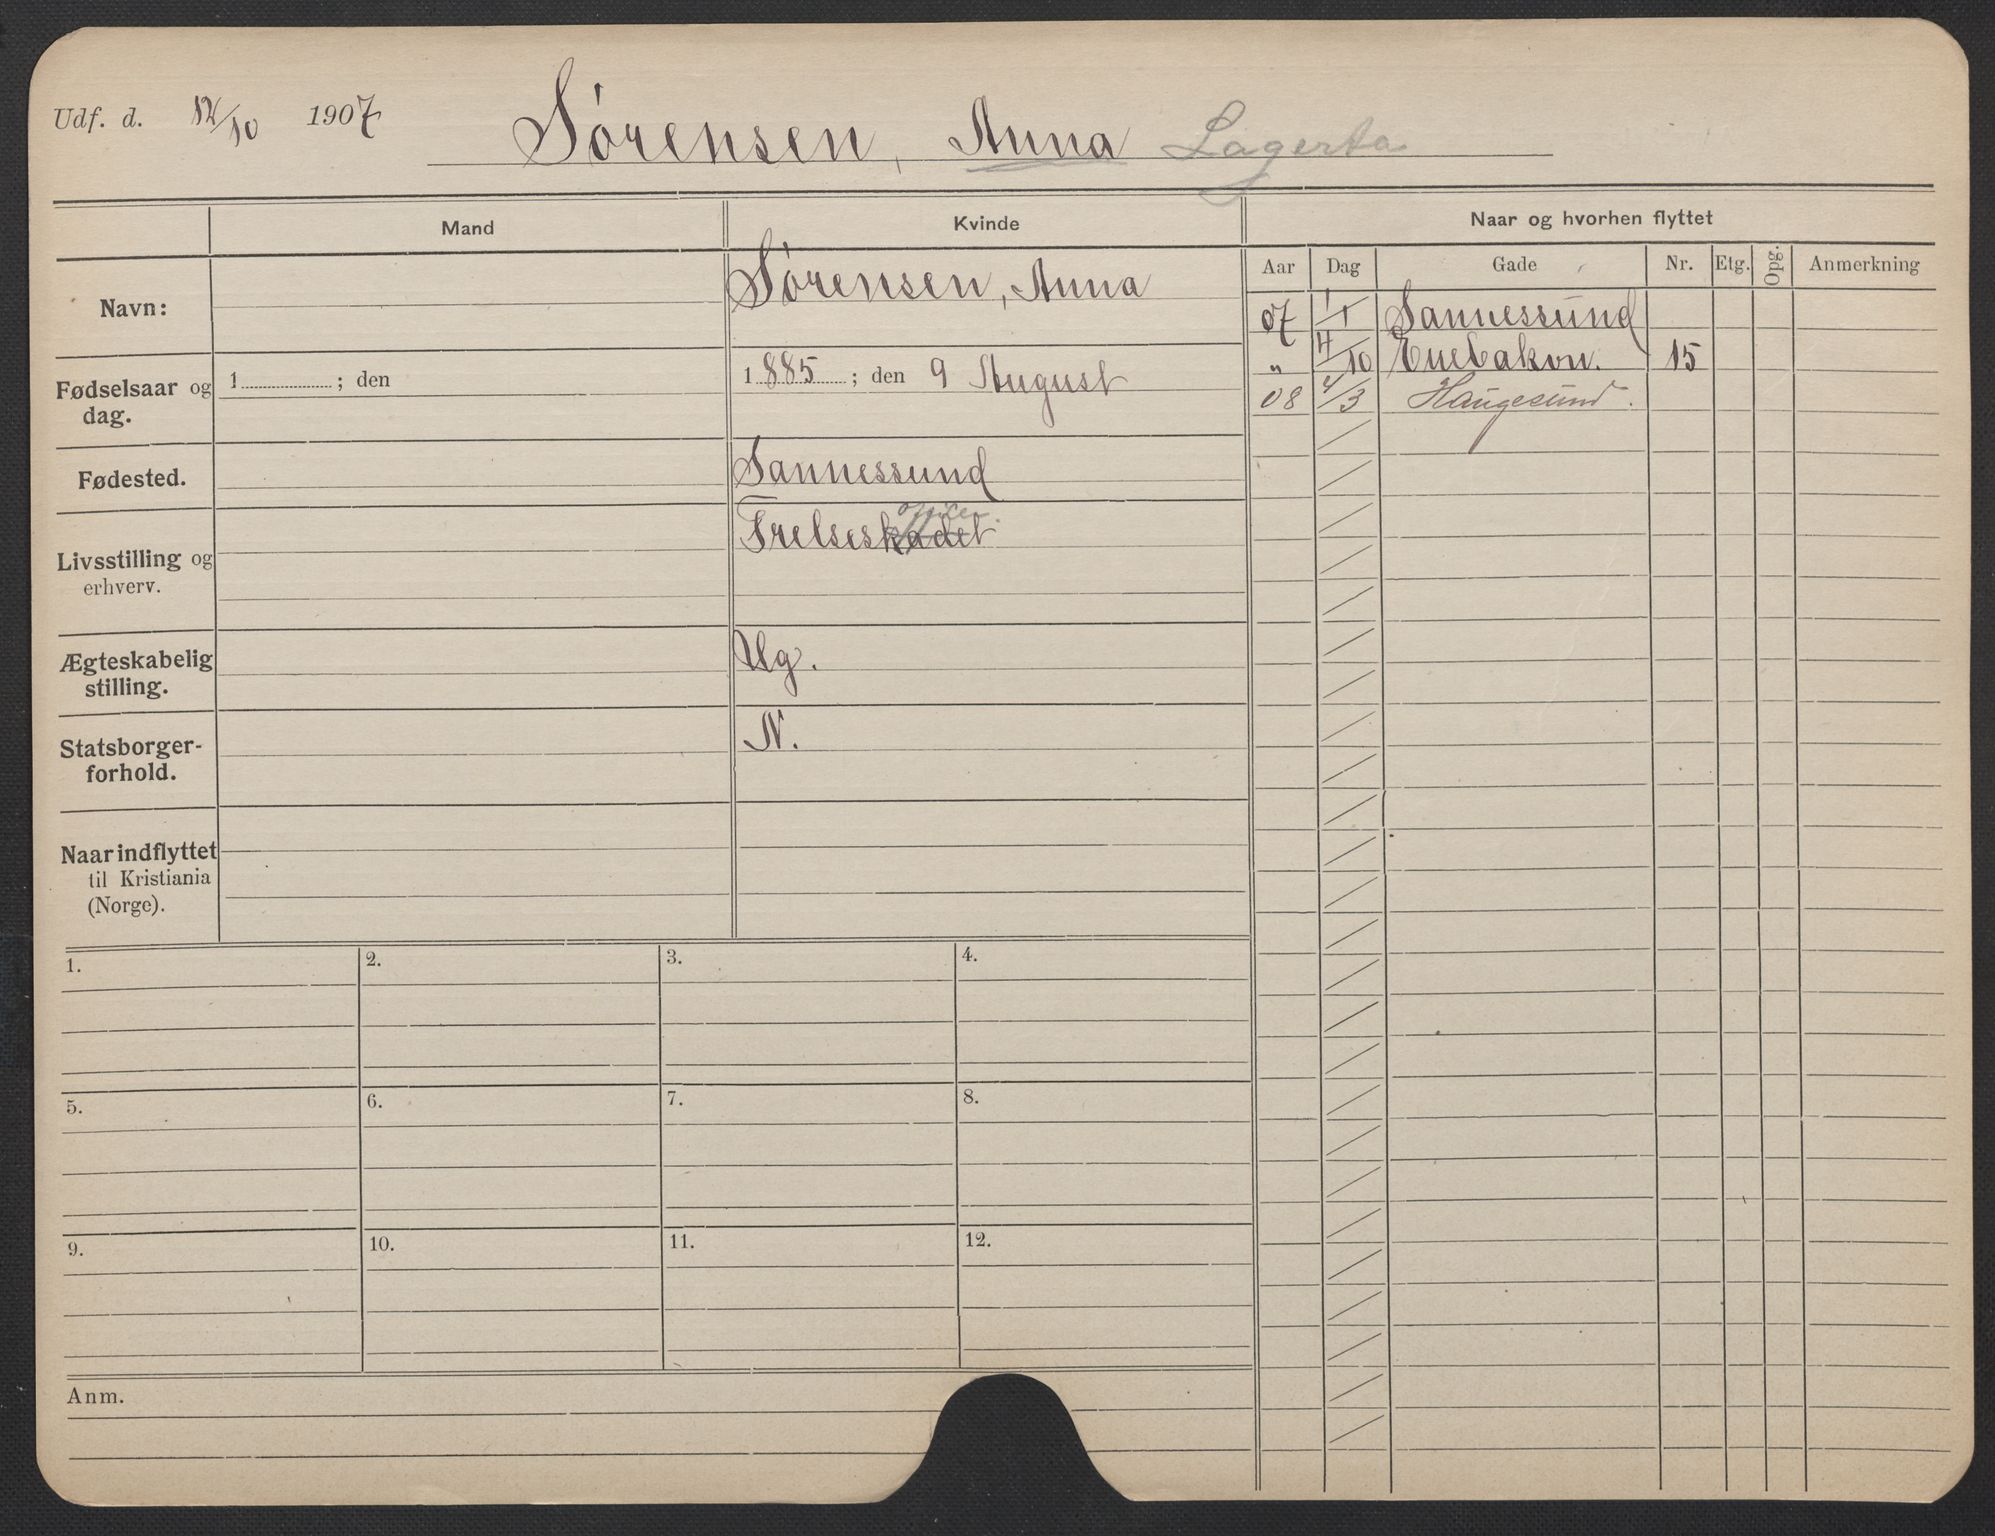 Udf. d. 12/10 1907 Sörensen, Anna Lagerta
Mand Kvinde Naar og hvorhen flyttet
Aar Dag Gade Nr. Etg. Opg. Anmerkning
Navn: Sörensen, Anna
07 1/1 Sannessund
„ 4/10 Enebakvn. 15
08 4/3 Haugesund.
Fødselsaar og dag. 1 ; den 1885 ; den 9 August
Fødested. Sannessund
officer.
Livsstilling og erhverv. Frelseskadet
Ægteskabelig stilling. Ug.
Statsborger-forhold. N.
Naar indflyttet til Kristiania (Norge).
1. 2. 3. 4.
5. 6. 7. 8.
9. 10. 11. 12.
Anm.